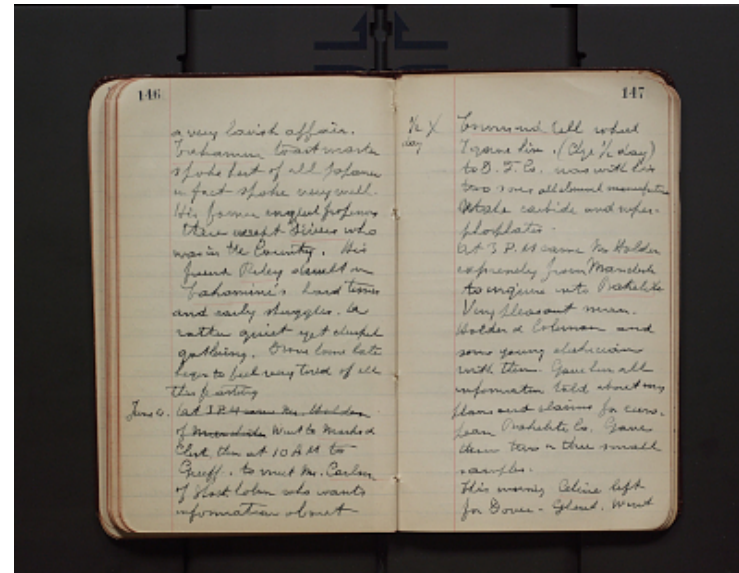 146
a very lavish affair.
Takamine toastmaster
spoke first of all Japanese
in fact spoke very well.
His former professors
there except Divers who
was in the Country. His
friend Riley dwelt on
Takamine's hard times
and early struggles. A
rather quiet yet cheerful
gathering. Drove home late
begin to feel very tired of all
this feasting
June 4. At 3 P.M came Mr. Holden
of Manchester Went to
Club, then at 10 AM to
Greeff. to meet Mr. Carlson
of Stockholm who wants
information about
147
1/2 X day
and tell what
I gave him. (Chge 1/2 day)
to D. F. Co. was with his
two sons all about manufacture
carbide and super-
phosphates.
At 3 P.M came Mr Holden
expressly from Manchester
to inquire into Bakelite
Very pleasant man.
Holden & Coleman and
some young electrician
with them. Gave him all
information told about my
plans and claims for Euro-
pean Bakelite Co. Gave
them two or three small
samples.
This morning Celine left
for Dover - Ghent. Went